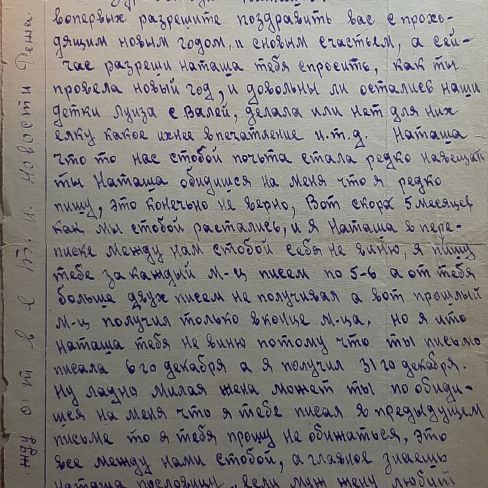 вопервых разрешите поздравить вас с прохо-
дящим новым годом, и сновым счастьем, а сей-
час разреши наташа тебя спросить, как ты
провела новый год, и довольны ли остались наши
детки Луиза с Валей, делала или нет для них
елку какое ихнее впечатление и.т.д. Наташа
что то нас стобой почьта стала редко навещать
ты Наташа обидишся на меня что я редко
пишу, это конечьно не верно, Вот скоро 5 месяцев
как мы стобой растались, и я Наташа в пере-
писке между нам стобой себя не виню, я пишу
тебе за каждый м-ц писем по 5-6 а от тебя
больше двух писем не получивал а вот прошлый
м-ц получил только вконце м-ца, но я ито
наташа тебя не виню потому что ты письмо
писала 6го декабря а я получил 31го декабря.
Ну ладно милая жена может ты по обиди-
шся на меня что я тебе писал в предыдущем
письме то я тебя прошу не обижаться, это
все между нами стобой, а главное знаешь
наташа пословицу, если муж жену любит
жду ответ и. Новости